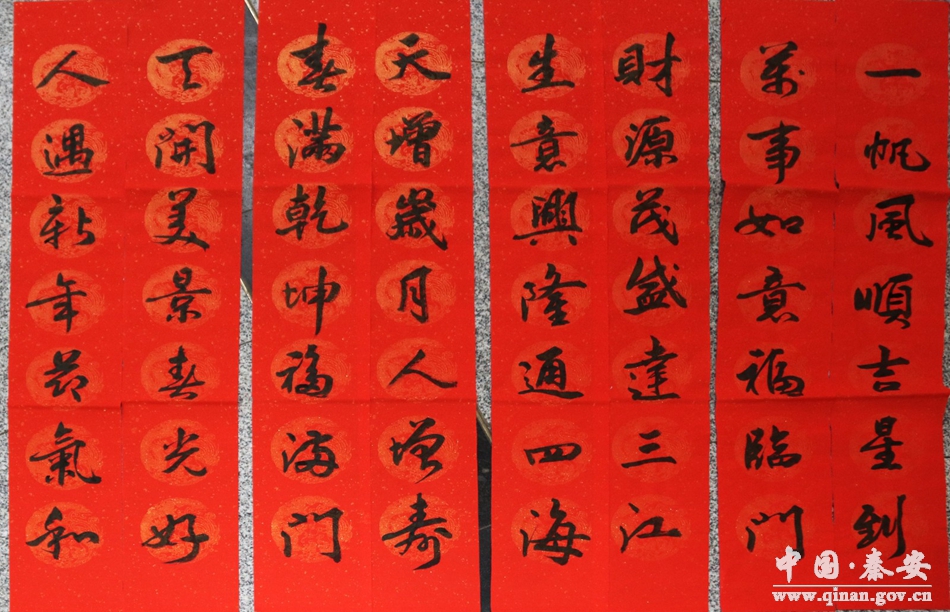 一帆風順吉星到
萬事如意福臨门
財源茂盛達三江
生意興隆通四海
天增歲月人增寿
春滿乾坤福满门
天開美景春光好
人遇新年节氣和
中国·秦安
www.qinan.gov.cn